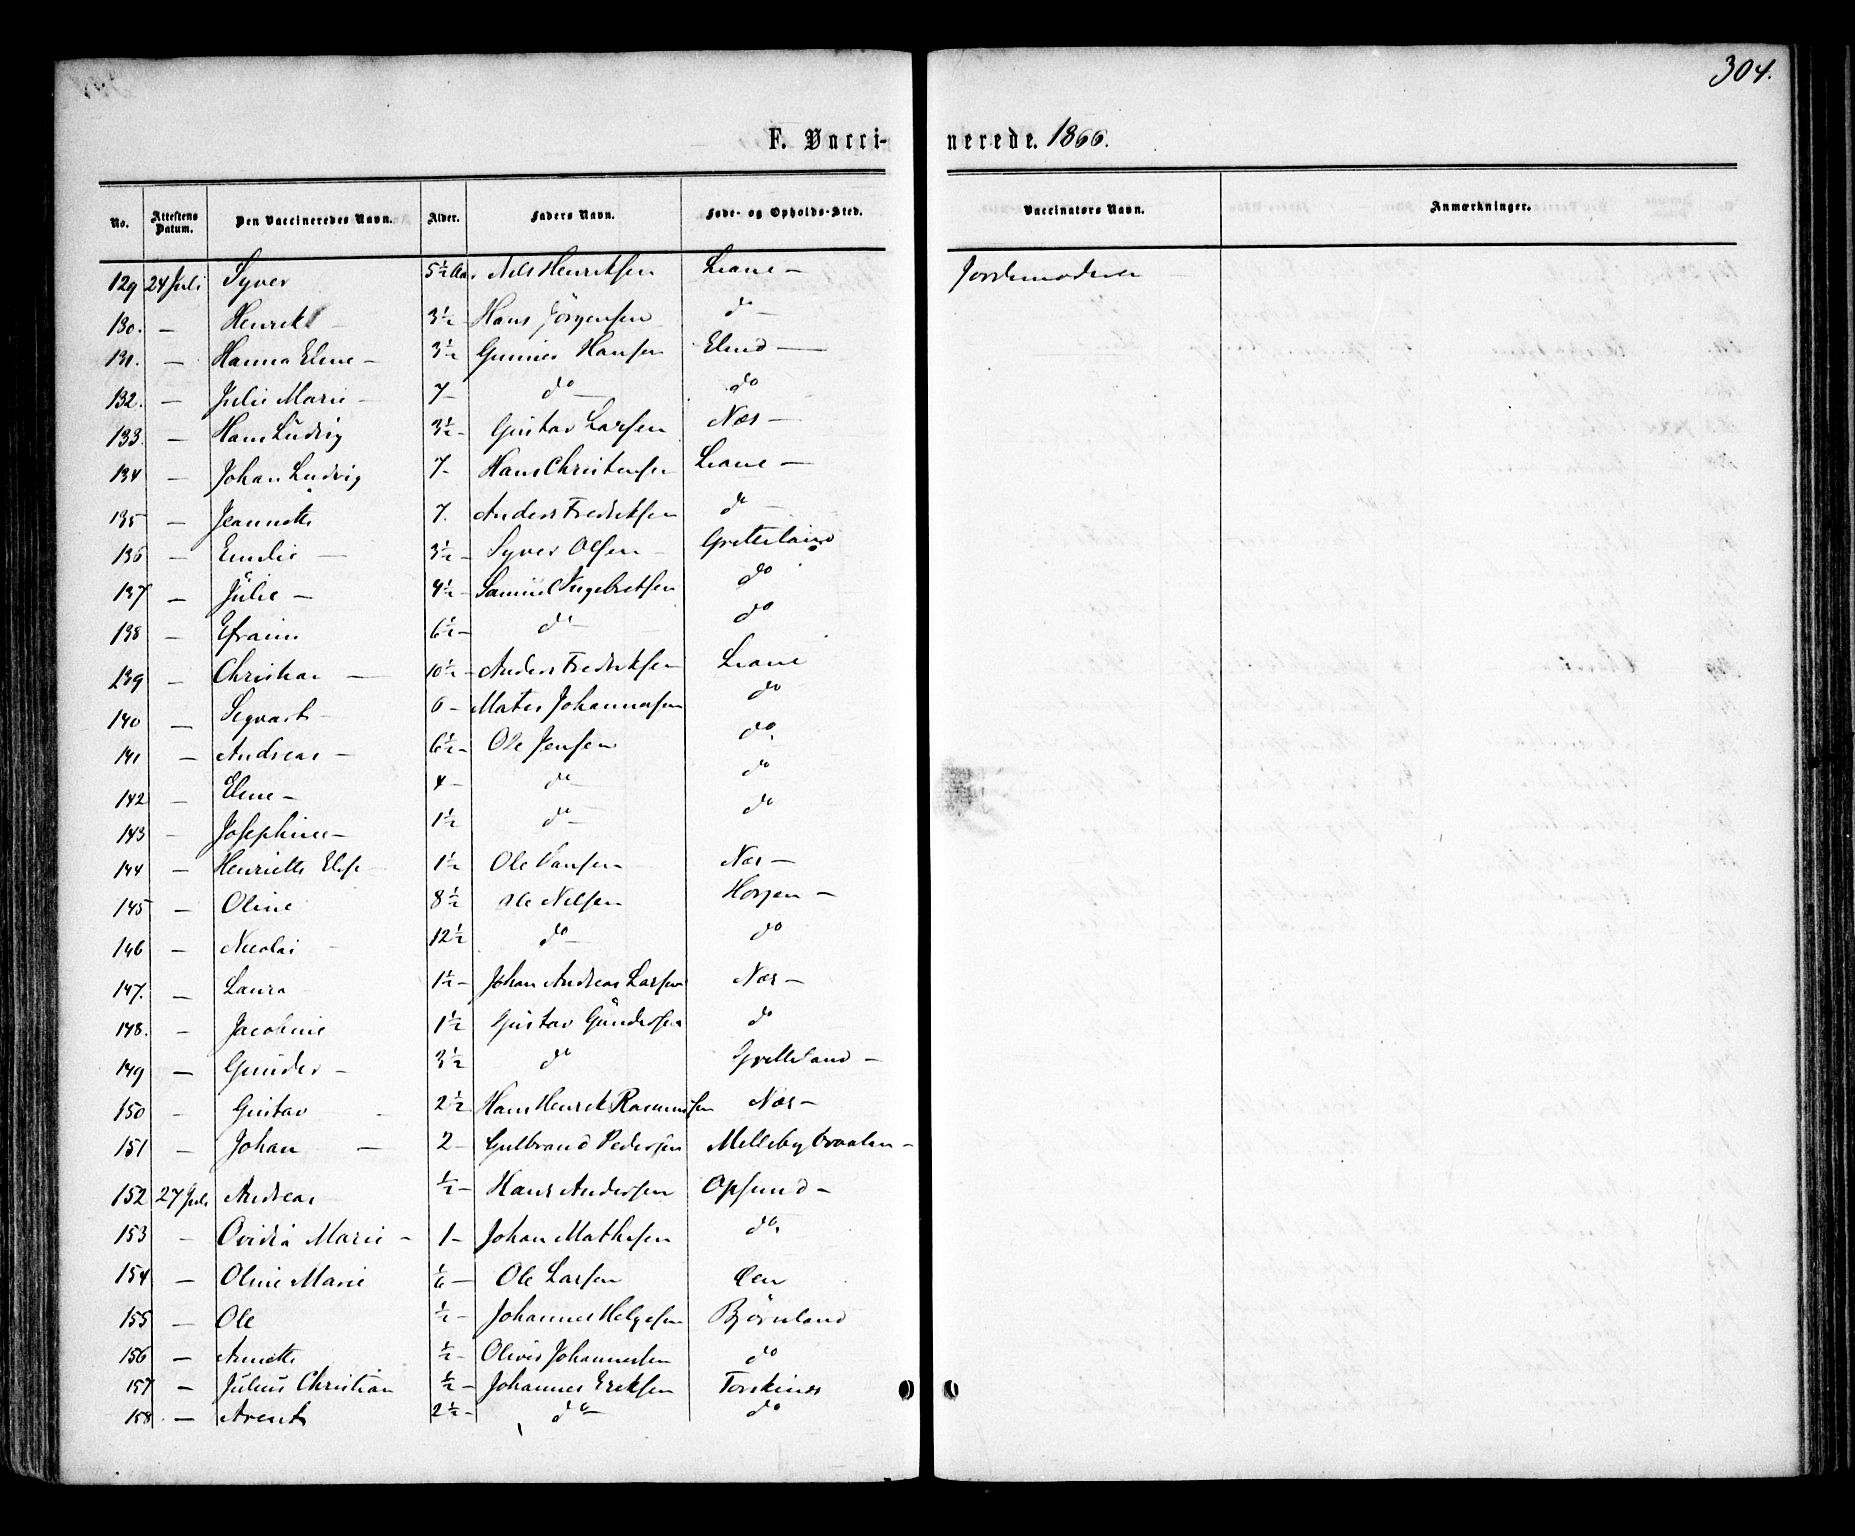 304.
F. Vaccinerede. 1866.
No. Attestens Datum. Den Vaccineredes Navn. Alder. Faders Navn. Føde- og Opholds-Sted. Vaccinators Navn. Anmærkninger.
129 24 Juli Syver 5½ Aar Nils Henriksen Liane – Jordemoderen
130. — Henrik 3½ – Hans Jörgensen do –
131. — Hanna Eline – 3½ Gunner Hansen Elind —
132. — Julie Marie – 7 – do – do
133. – Hans Ludvig 3½ – Gustav Larsen Næs –
134 — Johan Ludvig 7 – Hans Christensen Liane –
135 — Jeannette 7. Anders Fredriksen do –
136 – Emilie — 3½ – Syver Olsen – Gretteland
137 – Julie – 4½ – Samuel Ingebretsen do
138 – Efraim 6½ – do do
139 – Christian — 10½ – Anders Fredriksen Liane
140 — Sigvart – 6 – Mates Johannesen do
141 – Andreas – 6½ – Ole Jensen do.
142 – Eline – 4 – do do
143 – Josephine – 1½ do – do
144 – Henriette Else – 1½ Ole Hansen Næs –
145 – Oline 8½ Ole Nilsen Horgen –
146 – Nicolai 12½ do – do
147. – Laura 1½ – Johan Andreas Larsen Næs –
148. – Jacobine 1½ Gustav Gundersen do
149 – Gunder – 3½ do Gretteland –
150 – Gustav – 2½ Hans Henrik Rasmussen Næs –
151 – Johan — 2 – Gulbrand Pedersen Mellebybraaten –
152 27 Juli Andreas ½ – Hans Andersen Opsund –
153 – Ovidia Marie – 1 – Johan Mathisen do.
154 – Oline Marie ⅙ — Ole Larsen Øen
155 — Ole ½ – Johannes Helgesen Björnland
156 – Annette ½ – Oliver Johannesen do
157 – Julius Christian ½ – Johannes Eriksen Torskinds
158. — Arent 2½ – do – do